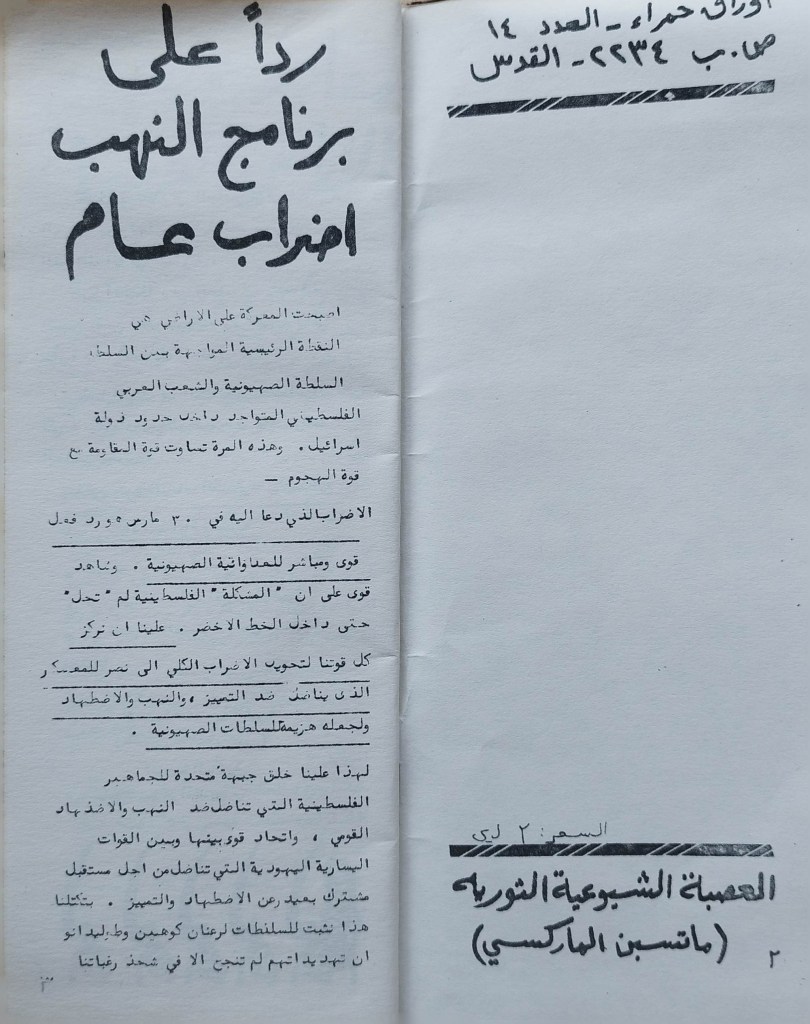 اوراق حمراء - العدد ١٤
ص.ب ٢٢٣٤ - القدس
السعر: ٢ ل.ي
العصبة الشيوعية الثوريه
(ماتسبن الماركسي)
٢
رداً على
برنامج النهب
اضراب عام
اصبحت المعركة على الاراضي هي
النقطة الرئيسية المواجهة بين السلطة
السلطة الصهيونية والشعب العربي
الفلسطيني المتواجد داخل حدود دولة
اسرائيل. وهذه المرة تساوت قوة المقاومة مع
قوة الهجوم —
الاضراب الذي دعا اليه في ٣٠ مارس هو رد فعل
قوى ومباشر للعداوانية الصهيونية. وشاهد
قوى على ان "المشكلة" الفلسطينية لم "تحل"
حتى داخل الخط الاخضر. علينا ان نركز
كل قوتنا لتحويل الاضراب الكلي الى نصر للمعسكر
الذى يناضل ضد التمييز، والنهب والاضطهاد
ولجعله هزيمة للسلطات الصهيونية.
لهذا علينا خلق جبهة متحدة للجماهير
الفلسطينية التي تناضل ضد النهب والاضطهاد
القومي، واتحاد قوى بينها وبين القوات
اليسارية اليهودية التي تناضل من اجل مستقبل
مشترك بعيد عن الاضطهاد والتمييز. بتكتلنا
هذا نثبت للسلطات لرعنان كوهين وطوليدانو
ان تهديداتهم لم تنجح الا في شحذ رغباتنا
٣